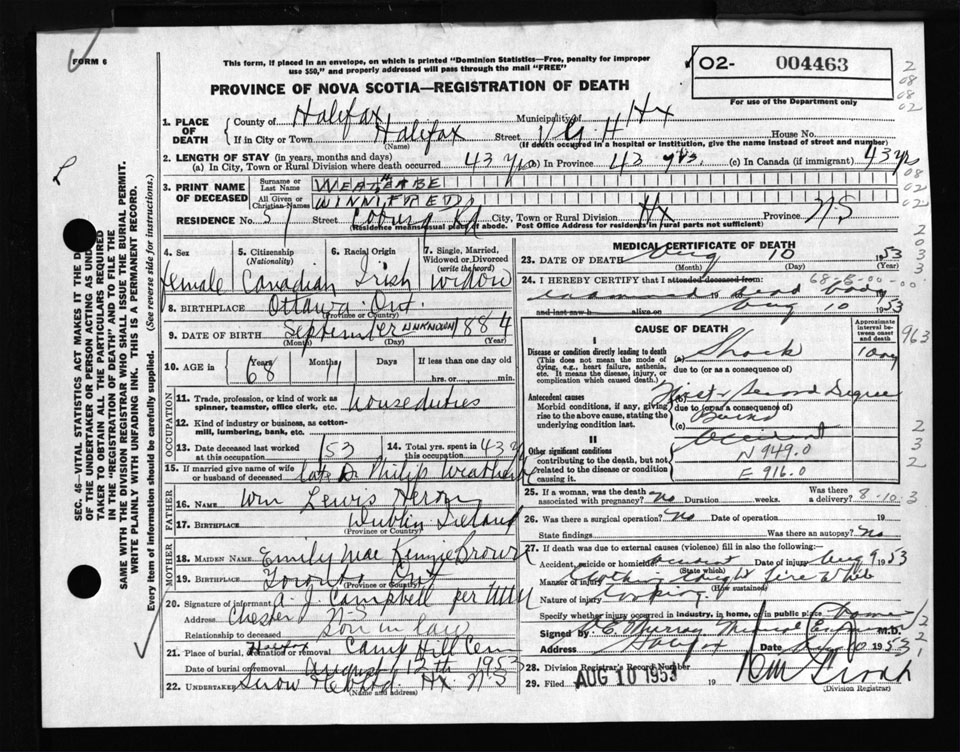 FORM 6
This form, if placed in an envelope, on which is printed "Dominion Statistics—Free, penalty for improper
use $50," and properly addressed will pass through the mail "FREE"
PROVINCE OF NOVA SCOTIA—REGISTRATION OF DEATH
02- 004463
For use of the Department only
2
08
08
02
1. PLACE OF DEATH
County of Halifax Municipality of Hx
If in City or Town Halifax Street V G H House No.
(Name) (If death occurred in a hospital or institution, give the name instead of street and number)
2. LENGTH OF STAY (in years, months and days)
(a) In City, Town or Rural Division where death occurred 43 yrs (b) In Province 43 yrs. (c) In Canada (if immigrant) 43 yrs
3. PRINT NAME OF DECEASED
Surname or Last Name WEATHERBE
All Given or Christian Names WINNIFRED
RESIDENCE No. 57 Street Coburg Rd City, Town or Rural Division Hx Province N.S
(Residence means usual place of abode. Post Office Address for residents in rural parts not sufficient)
08
02
02
SEC. 46—VITAL STATISTICS ACT MAKES IT THE
OF THE UNDERTAKER OR PERSON ACTING AS UNDER-
TAKER TO OBTAIN ALL THE PARTICULARS REQUIRED
IN THE "REGISTRATION OF DEATH" AND TO FILE THE
SAME WITH THE DIVISION REGISTRAR WHO SHALL ISSUE THE BURIAL PERMIT.
WRITE PLAINLY WITH UNFADING INK. THIS IS A PERMANENT RECORD.
Every item of information should be carefully supplied. (See reverse side for instructions.)
4. Sex female
5. Citizenship (Nationality) Canadian
6. Racial Origin Irish
7. Single, Married, Widowed or Divorced (write the word) widow
8. BIRTHPLACE Ottawa Ont.
(Province or Country)
9. DATE OF BIRTH September UNKNOWN 1884
(Month) (Day) (Year)
10. AGE in Years 68 Months Days If less than one day old
hrs. or min.
OCCUPATION
11. Trade, profession, or kind of work as spinner, teamster, office clerk, etc. house duties
12. Kind of industry or business, as cotton-mill, lumbering, bank, etc.
13. Date deceased last worked at this occupation 1953
14. Total yrs. spent in this occupation 43 y
15. If married give name of wife or husband of deceased late Dr Philip Weatherbe
FATHER
16. NAME Wm Lewis Heron
17. BIRTHPLACE Dublin Ireland
(Province or Country)
MOTHER
18. MAIDEN NAME Emily Mae Brown
19. BIRTHPLACE Toronto Ont
(Province or Country)
20. Signature of informant A. J. Campbell per
Address Chester N-S
Relationship to deceased son in law
21. Place of burial, cremation or removal Halifax Camp Hill Cem
Date of burial or removal August 12th 1953
22. UNDERTAKER Snow Hx. N-S
(Name and address)
MEDICAL CERTIFICATE OF DEATH
23. DATE OF DEATH Aug 10 1953
(Month) (Day) (Year)
24. I HEREBY CERTIFY that I attended deceased from: 68-8-00-00
examined dead body
and last saw h alive on Aug 10 1953
CAUSE OF DEATH
Approximate interval between onset and death
I
Disease or condition directly leading to death
(This does not mean the mode of dying, e.g., heart failure, asthenia, etc. It means the disease, injury, or complication which caused death.)
(a) Shock 1 day
due to (or as a consequence of)
Antecedent causes
Morbid conditions, if any, giving rise to the above cause, stating the underlying condition last.
First & Second Degree
due to (or as a consequence of)
Burns
(c) Accident
II
Other significant conditions
contributing to the death, but not related to the disease or condition causing it.
N 949.0
E 916.0
963
25. If a woman, was the death associated with pregnancy? no Duration weeks. Was there a delivery? 8-10-3
26. Was there a surgical operation? No Date of operation 19
State findings Was there an autopsy? No
27. If death was due to external causes (violence) fill in also the following:—
Accident, suicide or homicide? Accident Date of injury Aug 9 1953
(State which)
Manner of injury Clothing caught fire while
(How sustained)
Nature of injury Cooking
Specify whether injury occurred in industry, in home, or in public place home
Signed by Murray Medical Examiner M.D.
Address Halifax Date Aug 10 1953
28. Division Registrar's Record Number
29. Filed AUG 10 1953 19
(Division Registrar)